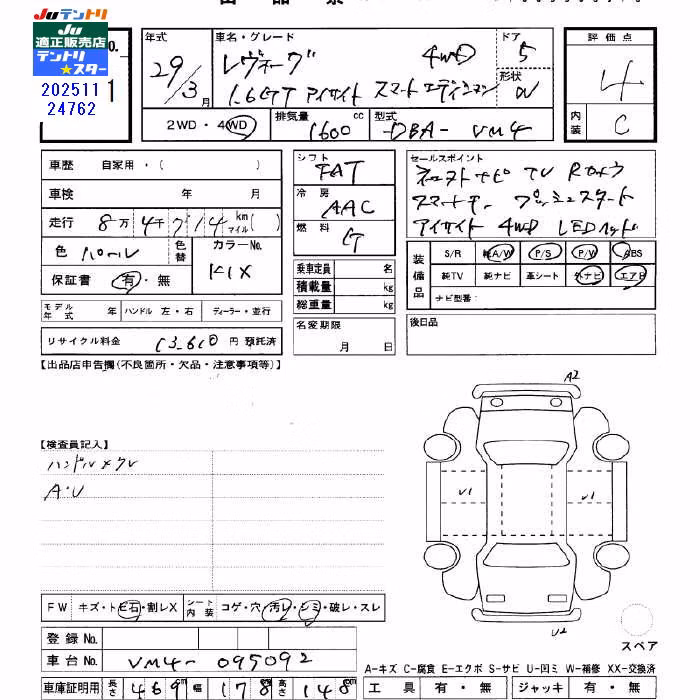 JUテントリ
JU
適正販売店
テントリ
★スター
202511
24762
No.
1
年式
29/3月
車名・グレード
レヴォーグ 4WD
1.6GT アイサイト スマートエディション
ドア
5
形状
W
評価点
4
内装
C
2WD・4WD
排気量
1600 cc
型式
-DBA- VM4
車歴 自家用・( )
車検 年 月
走行 8万4千714 km マイル( )
色 パール
色替
カラーNo.
K1X
保証書 有・無
シフト
FAT
冷房
AAC
燃料
G
乗車定員 名
積載量 kg
総重量 kg
セールスポイント
TV Rカメラ
スマートキー プッシュスタート
アイサイト 4WD LEDヘッド
装備品
S/R 純A/W P/S P/W ABS
純TV 純ナビ 革シート 外ナビ エアB
ナビ型番:
モデル年式 年 ハンドル 左・右 ディーラー・並行
リサイクル料金 13,610 円 預託済
名変期限
月 日
後日品
【出品店申告欄(不良箇所・欠品・注意事項等)】
【検査員記入】
ハンドルスレ
A・U
A2
U1
U1
U2
スペア
FW キズ・トビ石・割レX シート内装 コゲ・穴・汚レ・シミ・破レ・スレ
登録No.
車台No. VM4-095092
車庫証明用 長さ 469 cm 幅 178 cm 高さ 148 cm
A-キズ C-腐食 E-エクボ S-サビ U-凹ミ W-補修 XX-交換済
工具 有・無 ジャッキ 有・無